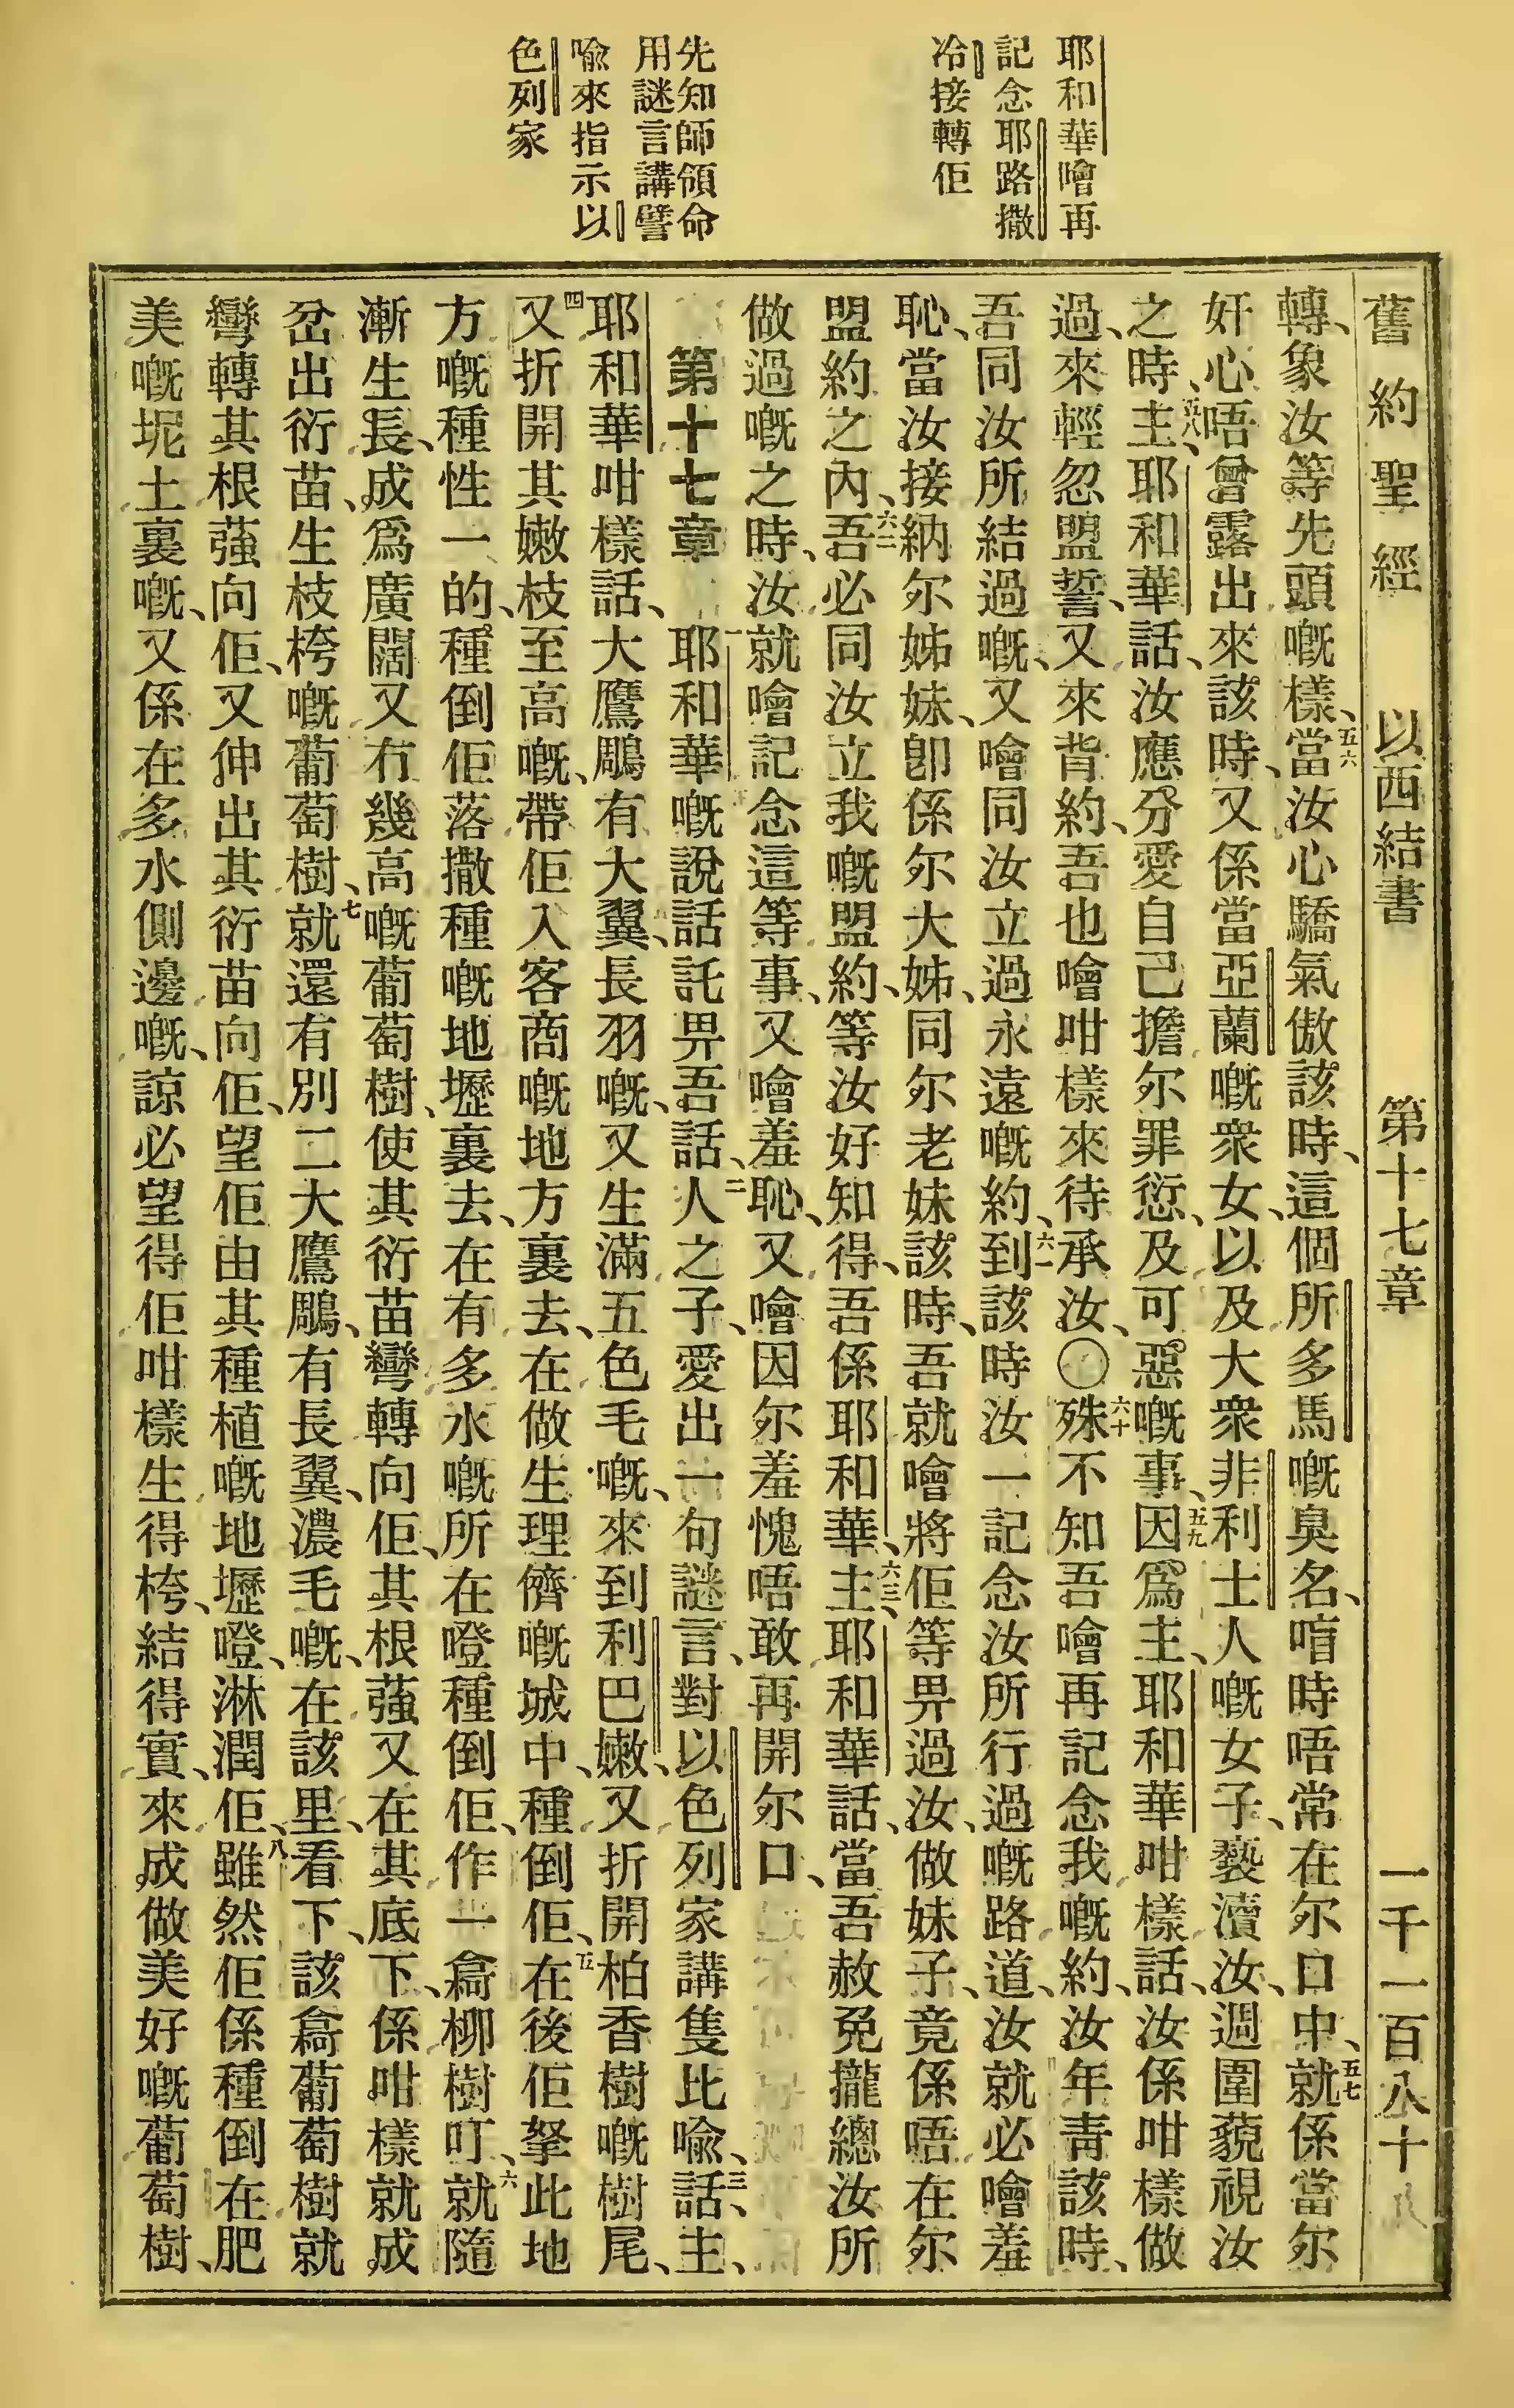 耶和華噲再
記念耶路撒
冷接轉佢
先知師領命
用謎言講譬
喻來指示以
色列家
舊約聖經 以西結書 第十七章 一千一百八十
轉、象汝等先頭嘅樣、五六當汝心驕氣傲該時、這個所多馬嘅臭名、唔時唔常在尔口中、五七就係當尔
奸心唔曾露出來該時、又係當亞蘭嘅衆女、以及大衆非利士人嘅女子、褻瀆汝、週圍藐視汝
之時、五八主、耶和華話、汝應分愛自己擔尔罪愆、及可惡嘅事、五九因爲主、耶和華咁樣話、汝係咁樣做
過、來輕忽盟誓、又來背約、吾也噲咁樣來待承汝、〇六十殊不知吾噲再記念我嘅約、汝年靑該時、
吾同汝所結過嘅、又噲同汝立過永遠嘅約、六一到該時汝一記念汝所行過嘅路道、汝就必噲羞
恥、當汝接納尔姊妹、卽係尔大姊、同尔老妹該時、吾就噲將佢等畀過汝、做妹子、竟係唔在尔
盟約之內、六二吾必同汝立我嘅盟約、等汝好知得、吾係耶和華、六三主、耶和華話、當吾赦免攏總汝所
做過嘅之時、汝就噲記念這等事、又噲羞恥、又噲因尔羞愧唔敢再開尔口、
第十七章 一耶和華嘅說話託畀吾話、二人之子、愛出一句謎言、對以色列家講隻比喩、三話、主、
耶和華咁樣話、大鷹鵰有大翼、長羽嘅、又生滿五色毛嘅、來到利巴嫩、又折開柏香樹嘅樹尾、
四又折開其嫩枝至高嘅、帶佢入客商嘅地方裏去、在做生理儕嘅城中、種倒佢、五在後佢拏此地
方嘅種性一的、種倒佢落撒種嘅地壢裏去、在有多水嘅所在噔種倒佢、作一樖柳樹叮、六就隨
漸生長、成爲廣闊又冇幾高嘅葡萄樹、使其衍苗彎轉向佢、其根蔃又在其底下、係咁樣就成
岔出衍苗、生枝桍嘅葡萄樹、七就還有別二大鷹鵰、有長翼、濃毛嘅、在該里、看下、該樖葡萄樹就
彎轉其根蔃向佢、又伸出其衍苗向佢、望佢由其種植嘅地壢噔、淋潤佢、八雖然佢係種倒在肥
美嘅坭土裏嘅、又係在多水側邊嘅、諒必望得佢咁樣生得桍、結得實、來成做美好嘅葡萄樹、